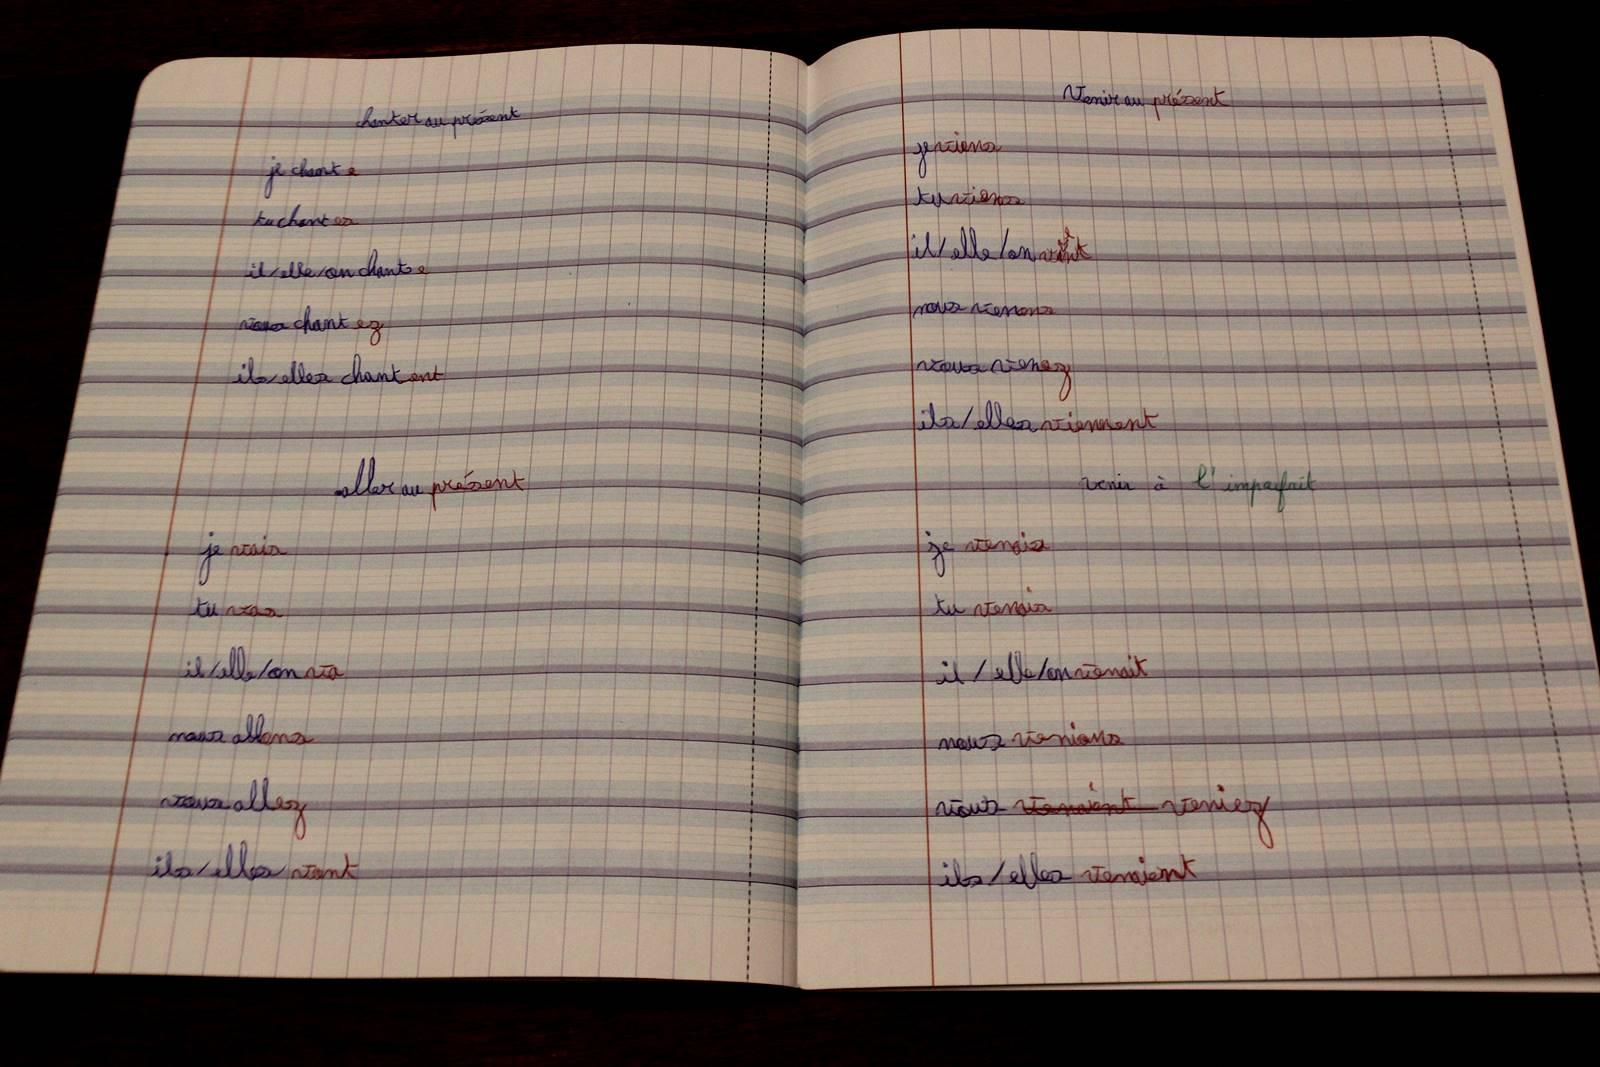 chanter au présent
je chante
tu chantes
il/elle/on chante
vous chantez
ils/elles chantent
aller au présent
je vais
tu vas
il/elle/on va
nous allons
vous allez
ils/elles vont
Venir au présent
je viens
tu viens
il/elle/on vient
nous venons
vous venez
ils/elles viennent
venir à l'imparfait
je venais
tu venais
il/elle/on venait
nous venions
vous venaient veniez
ils/elles venaient